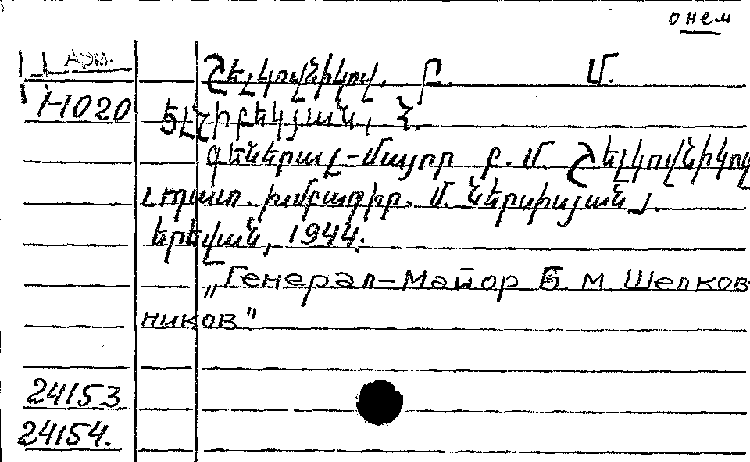 онем
Арм. Շելկովնիկով. Բ. Մ.
H020 Ելչիբեկյան, Հ.
Գեներալ-մայոր Բ. Մ. Շելկովնիկով
Լպատ. խմբագիր. Մ. Ներսիսյան
Երեվան, 1944.
„Генерал-Майор Б М Шелков-
ников"
24153
24154.